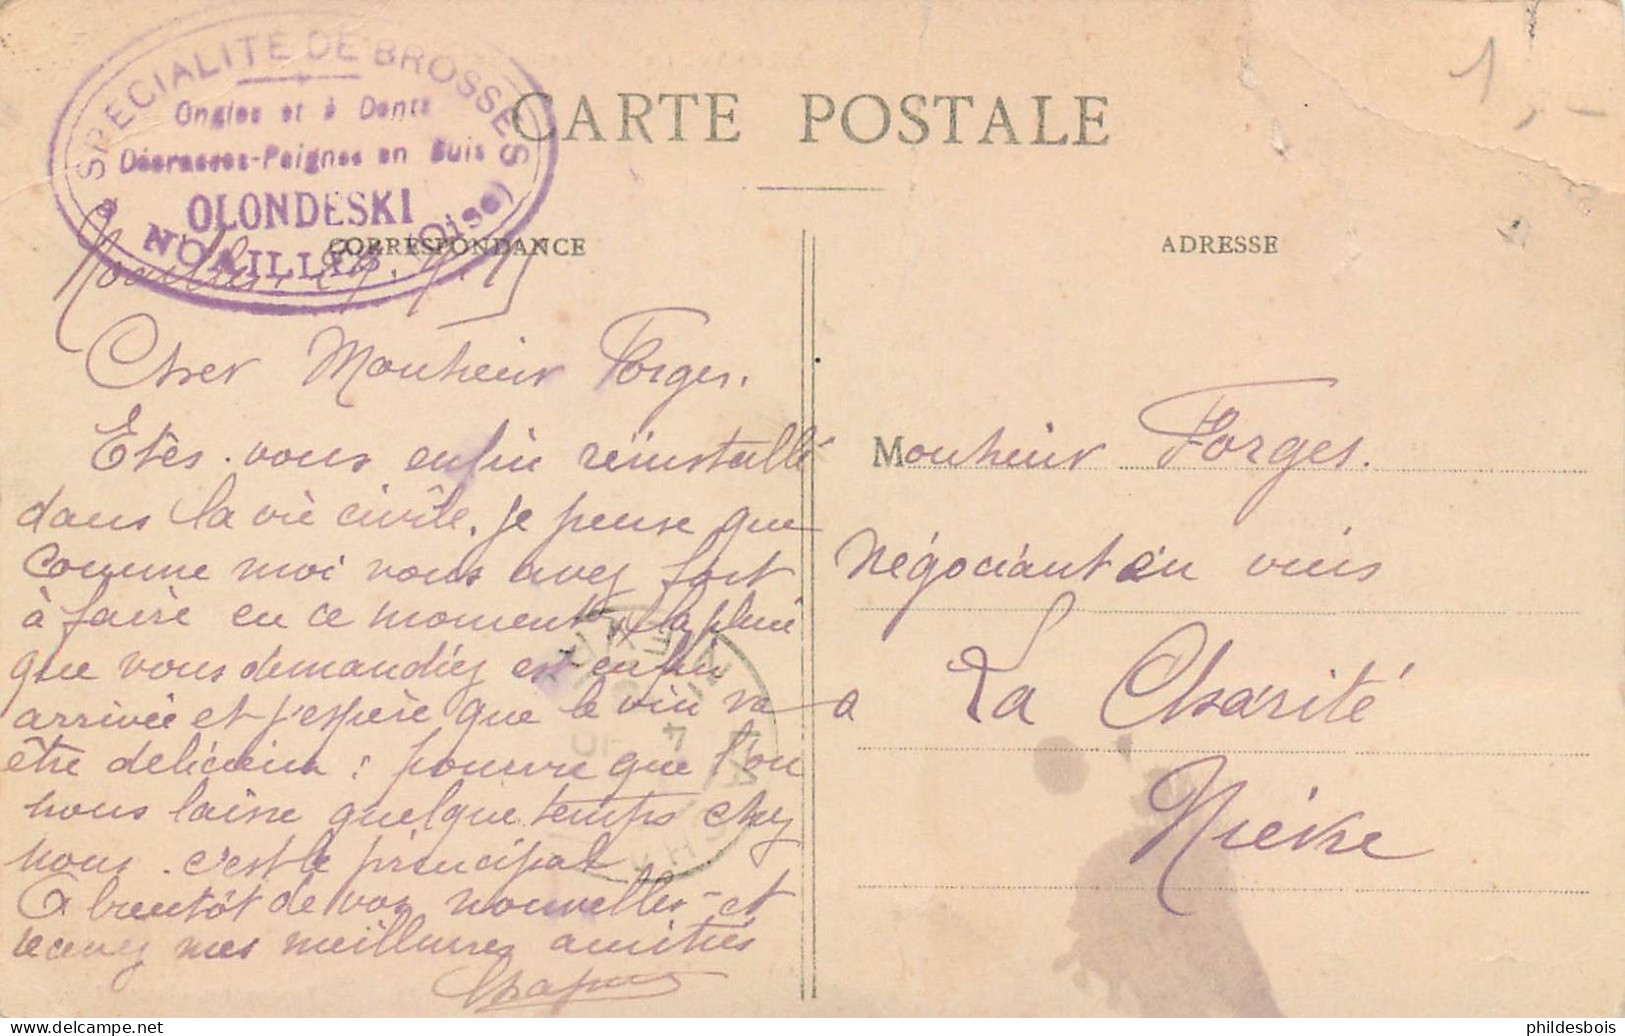 SPECIALITE DE BROSSES
Ongles et à Dents
Peignes en Buis
OLONDESKI
NOAILLES (Oise)
CARTE POSTALE
CORRESPONDANCE
ADRESSE
1,-
Noailles
Cher Monsieur Forges.
Etes-vous enfin réinstallé
dans la vie civile. je pense que
comme moi vous avez fort
à faire en ce moment, la pluie
que vous demandiez est enfin
arrivée et j'espère que le vin va
être délicieux : pourvu que l'on
nous laisse quelque temps chez
nous. c'est le principal
A bientôt de vos nouvelles - et
recevez mes meilleures amitiés
Monsieur Forges.
négociant en vins
a La Charité
Nièvre
phildesbois